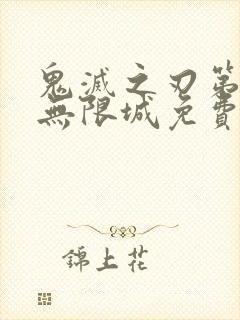 鬼滅之刃第
無限城免費
錦上花